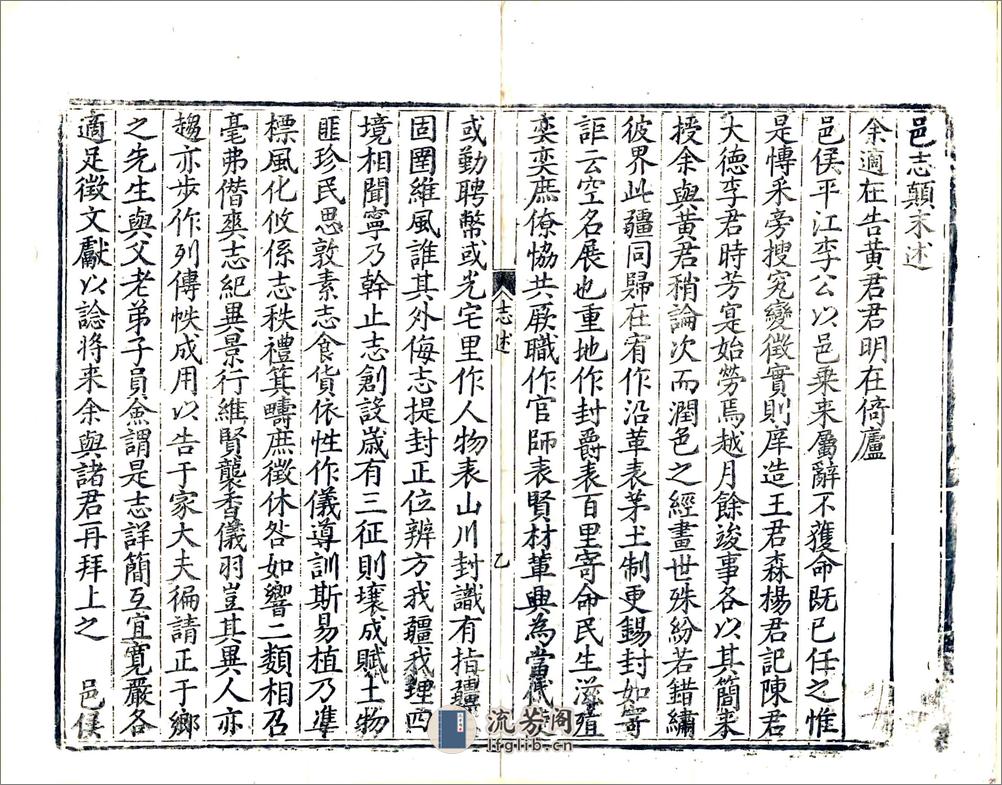 邑志顛末述
余適在告黄君君明在倚廬
邑侯平江李公以邑乗来屬辭不獲命既已任之惟
是愽采旁搜宄變徵實則庠造王君森楊君記陳君
大德李君時芳寔始勞焉越月餘竣事各以其簡来
授余與黄君稍論次而潤色之經畫世殊紛若錯繡
彼界此疆同歸在宥作沿革表茅土制更錫封如寄
詎云空名展也重地作封爵表百里寄命民生滋殖
奕奕庶僚恊共厥職作官師表賢材軰興為當代
或勤聘幣或光宅里作人物表山川封識有指
固圉維風誰其外侮志提封正位辨方我疆我理四
境相聞寧乃幹止志創設嵗有三征則壤成賦土物
匪珍民思敦素志食貨依性作儀導訓斯易植乃凖
標風化攸係志秩禮箕疇庶徵休咎如響二類相召
毫弗僭爽志紀異景行維賢襲香儀羽豈其異人亦
趨亦步作列傳帙成用以告于家大夫徧請正于鄉
之先生與父老弟子員僉謂是志詳簡互宜寛嚴各
適足徵文獻以諗将来余與諸君再拜上之 邑侯
志述
乙
流芳阁
lfglib.cn